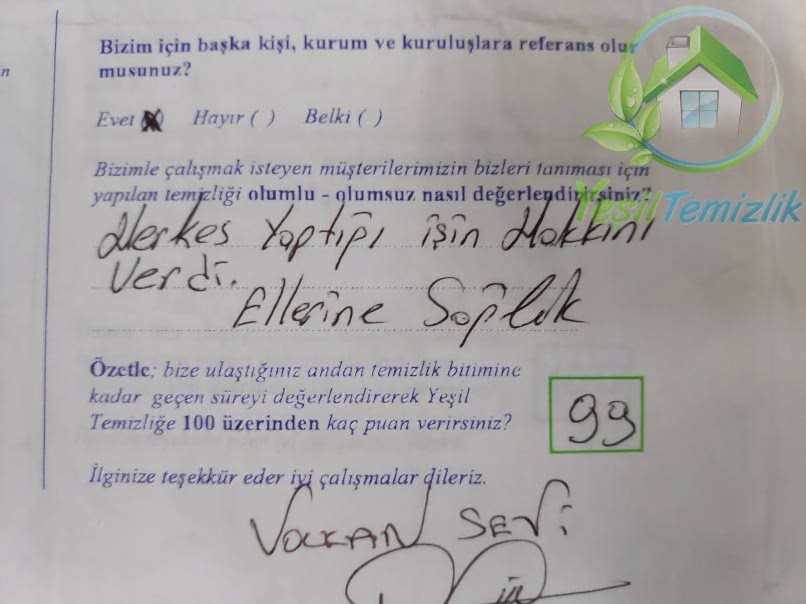 Bizim için başka kişi, kurum ve kuruluşlara referans olur
musunuz?
Evet (X) Hayır ( ) Belki ( )
Bizimle çalışmak isteyen müşterilerimizin bizleri tanıması için
yapılan temizliği olumlu - olumsuz nasıl değerlendirirsiniz?
Herkes Yaptığı işin Hakkını
Verdi.
Ellerine Sağlık
Özetle; bize ulaştığınız andan temizlik bitimine
kadar geçen süreyi değerlendirerek Yeşil
Temizliğe 100 üzerinden kaç puan verirsiniz?
99
İlginize teşekkür eder iyi çalışmalar dileriz.
VOLKAN SEVİ
YeşilTemizlik